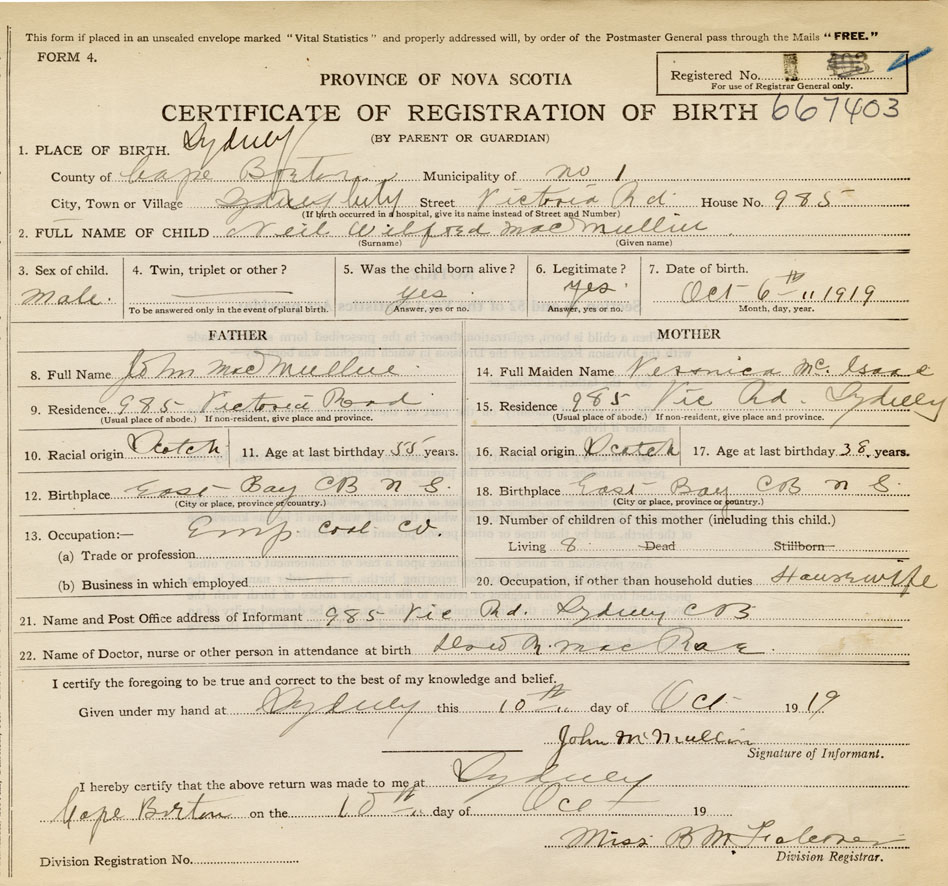 This form if placed in an unsealed envelope marked "Vital Statistics" and properly addressed will, by order of the Postmaster General pass through the Mails "FREE."
FORM 4.
PROVINCE OF NOVA SCOTIA
Registered No.
For use of Registrar General only.
CERTIFICATE OF REGISTRATION OF BIRTH 667403
(BY PARENT OR GUARDIAN)
1. PLACE OF BIRTH. Sydney
County of Cape Breton Municipality of no 1
City, Town or Village Sydney City Street Victoria Rd House No. 985
(If birth occurred in a hospital, give its name instead of Street and Number)
2. FULL NAME OF CHILD Neil Wilfred MacMullin
(Surname) (Given name)
3. Sex of child. 4. Twin, triplet or other? 5. Was the child born alive? 6. Legitimate? 7. Date of birth.
Male. yes yes. Oct 6th 1919
To be answered only in the event of plural birth. Answer, yes or no. Answer, yes or no. Month, day, year.
FATHER MOTHER
8. Full Name John MacMullin 14. Full Maiden Name Veronica Mc Isaac
9. Residence. 985 Victoria Road 15. Residence 985 Vic Rd. Sydney
(Usual place of abode.) If non-resident, give place and province. (Usual place of abode.) If non-resident, give place and province.
10. Racial origin Scotch 11. Age at last birthday 55 years. 16. Racial origin Scotch 17. Age at last birthday 38 years.
12. Birthplace East Bay CB N S. 18. Birthplace East Bay CB N S
(City or place, province or country.) (City or place, province or country.)
13. Occupation:— Emp coal co. 19. Number of children of this mother (including this child.)
(a) Trade or profession Living 8 Dead Stillborn
(b) Business in which employed 20. Occupation, if other than household duties Housewife
21. Name and Post Office address of Informant 985 Vic Rd. Sydney CB
22. Name of Doctor, nurse or other person in attendance at birth MacRae
I certify the foregoing to be true and correct to the best of my knowledge and belief.
Given under my hand at Sydney this 10th day of Oct 1919
John McMullin
Signature of Informant.
I hereby certify that the above return was made to me at Sydney
Cape Breton on the 10th day of Oct 19
Miss B M. Falconer
Division Registration No. Division Registrar.